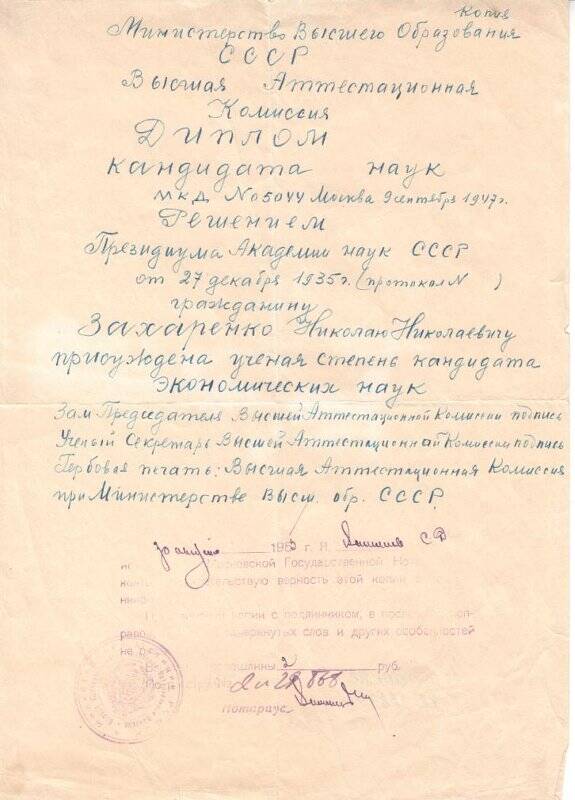 Копия
Министерство Высшего Образования
СССР
Высшая Аттестационная
Комиссия
Диплом
кандидата наук
МКД № 05044 Москва 9 сентября 1947г.
Решением
Президиума Академии наук СССР
от 27 декабря 1935г. (протокол N )
гражданину
Захаренко Николаю Николаевичу
присуждена ученая степень кандидата
экономических наук
Зам Председателя Высшей Аттестационной Комиссии подпись
Ученый Секретарь Высшей Аттестационной Комиссии подпись
Гербовая печать: Высшая Аттестационная Комиссия
при Министерстве Высш. обр. СССР
г. Я,
Московской Государственной
верность этой копии
с подлинником, в
слов и других особенностей
не
2 руб.
Нотариус